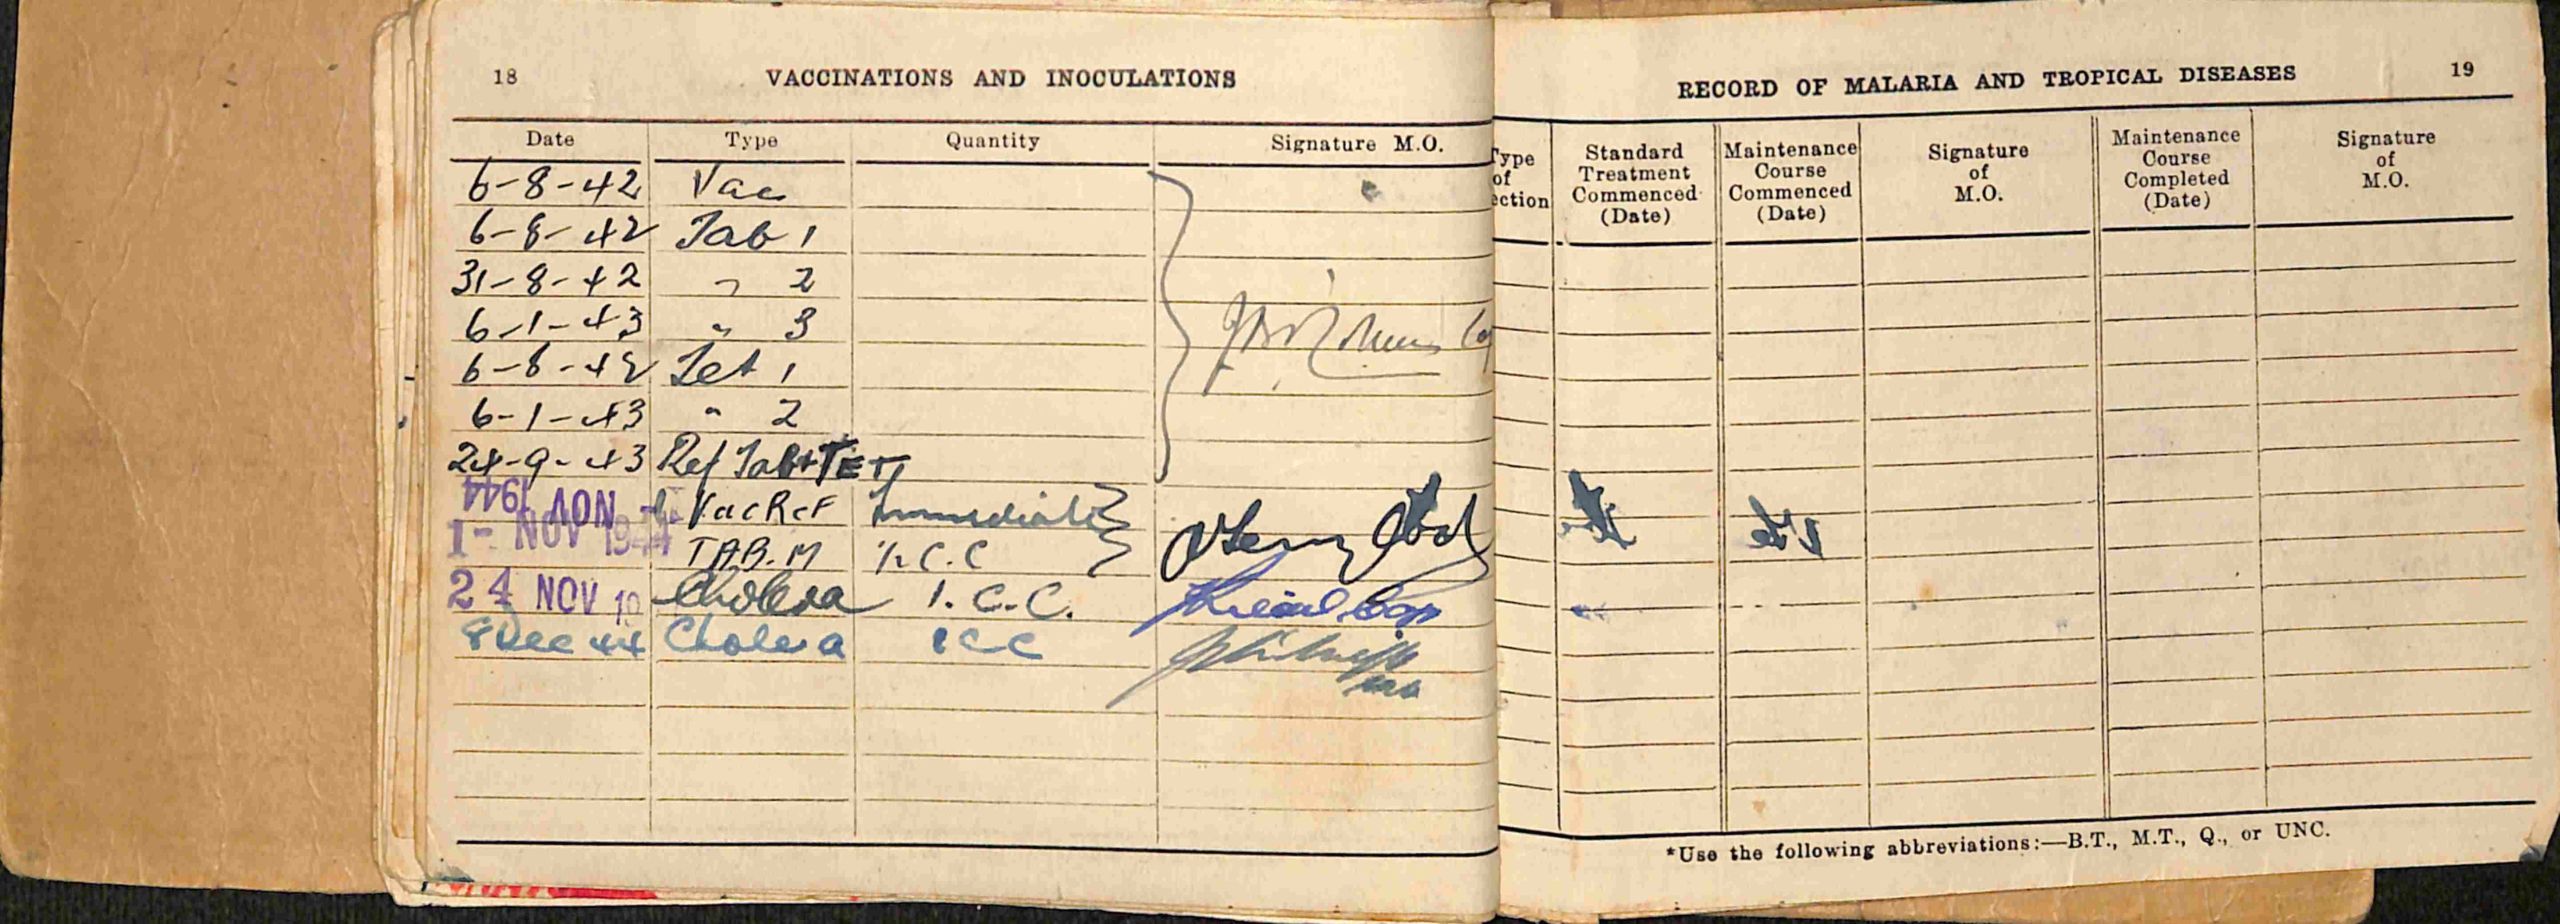 18 VACCINATIONS AND INOCULATIONS
Date Type Quantity Signature M.O.
6-8-42 Vac
6-8-42 Tab 1
31-8-42 " 2
6-1-43 " 3
6-8-42 Tet 1
6-1-43 " 2
24-9-43 Ref Tab+TET
1- NOV 1944 Vac Ref Immediate
1- NOV 1944 T.A.B. M ½ C.C
24 NOV 19 Cholera 1. C.C.
8 Dec 44 Cholera 1 CC
RECORD OF MALARIA AND TROPICAL DISEASES 19
Type of ection
Standard Treatment Commenced (Date)
Maintenance Course Commenced (Date)
Signature of M.O.
Maintenance Course Completed (Date)
Signature of M.O.
*Use the following abbreviations:—B.T., M.T., Q., or UNC.